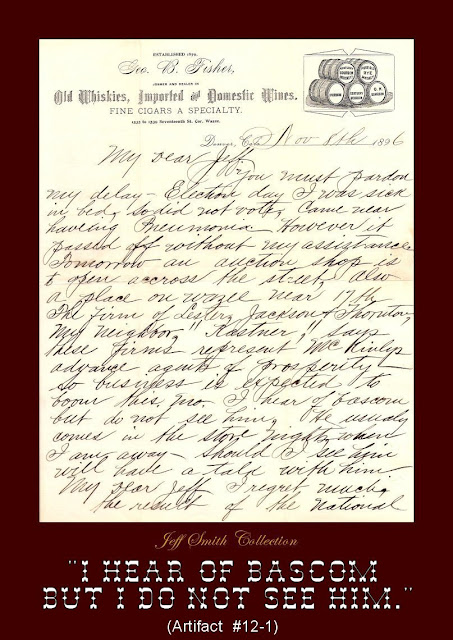 ESTABLISHED 1870.
Geo. B. Fisher,
JOBBER AND DEALER IN
Old Whiskies, Imported and Domestic Wines.
FINE CIGARS A SPECIALTY.
Seventeenth St. Cor. Wazee.
Denver, Colo. Nov 8th 1896
My Dear Jeff
You must pardon
my delay - Election day I was sick
in bed, so did not vote, Came near
haveing Pneumonia However it
passed off without my assistance
Tomorrow an auction shop is
to open accross the street, also
a place on wazee near 17th
The firm of Lester, Jackson & Thornton,
My Neighbor, "Kastner," says
these firms represent McKinlys
advance agents of prosperity -
so business is expected to
boom this mo. I hear of bascom
but do not see him, He usualy
comes in the store nights when
I am away - should I see him
will have a talk with him
My Dear Jeff I regret much
the result of the National
Jeff Smith Collection
"I HEAR OF BASCOM
BUT I DO NOT SEE HIM."
(Artifact #12-1)